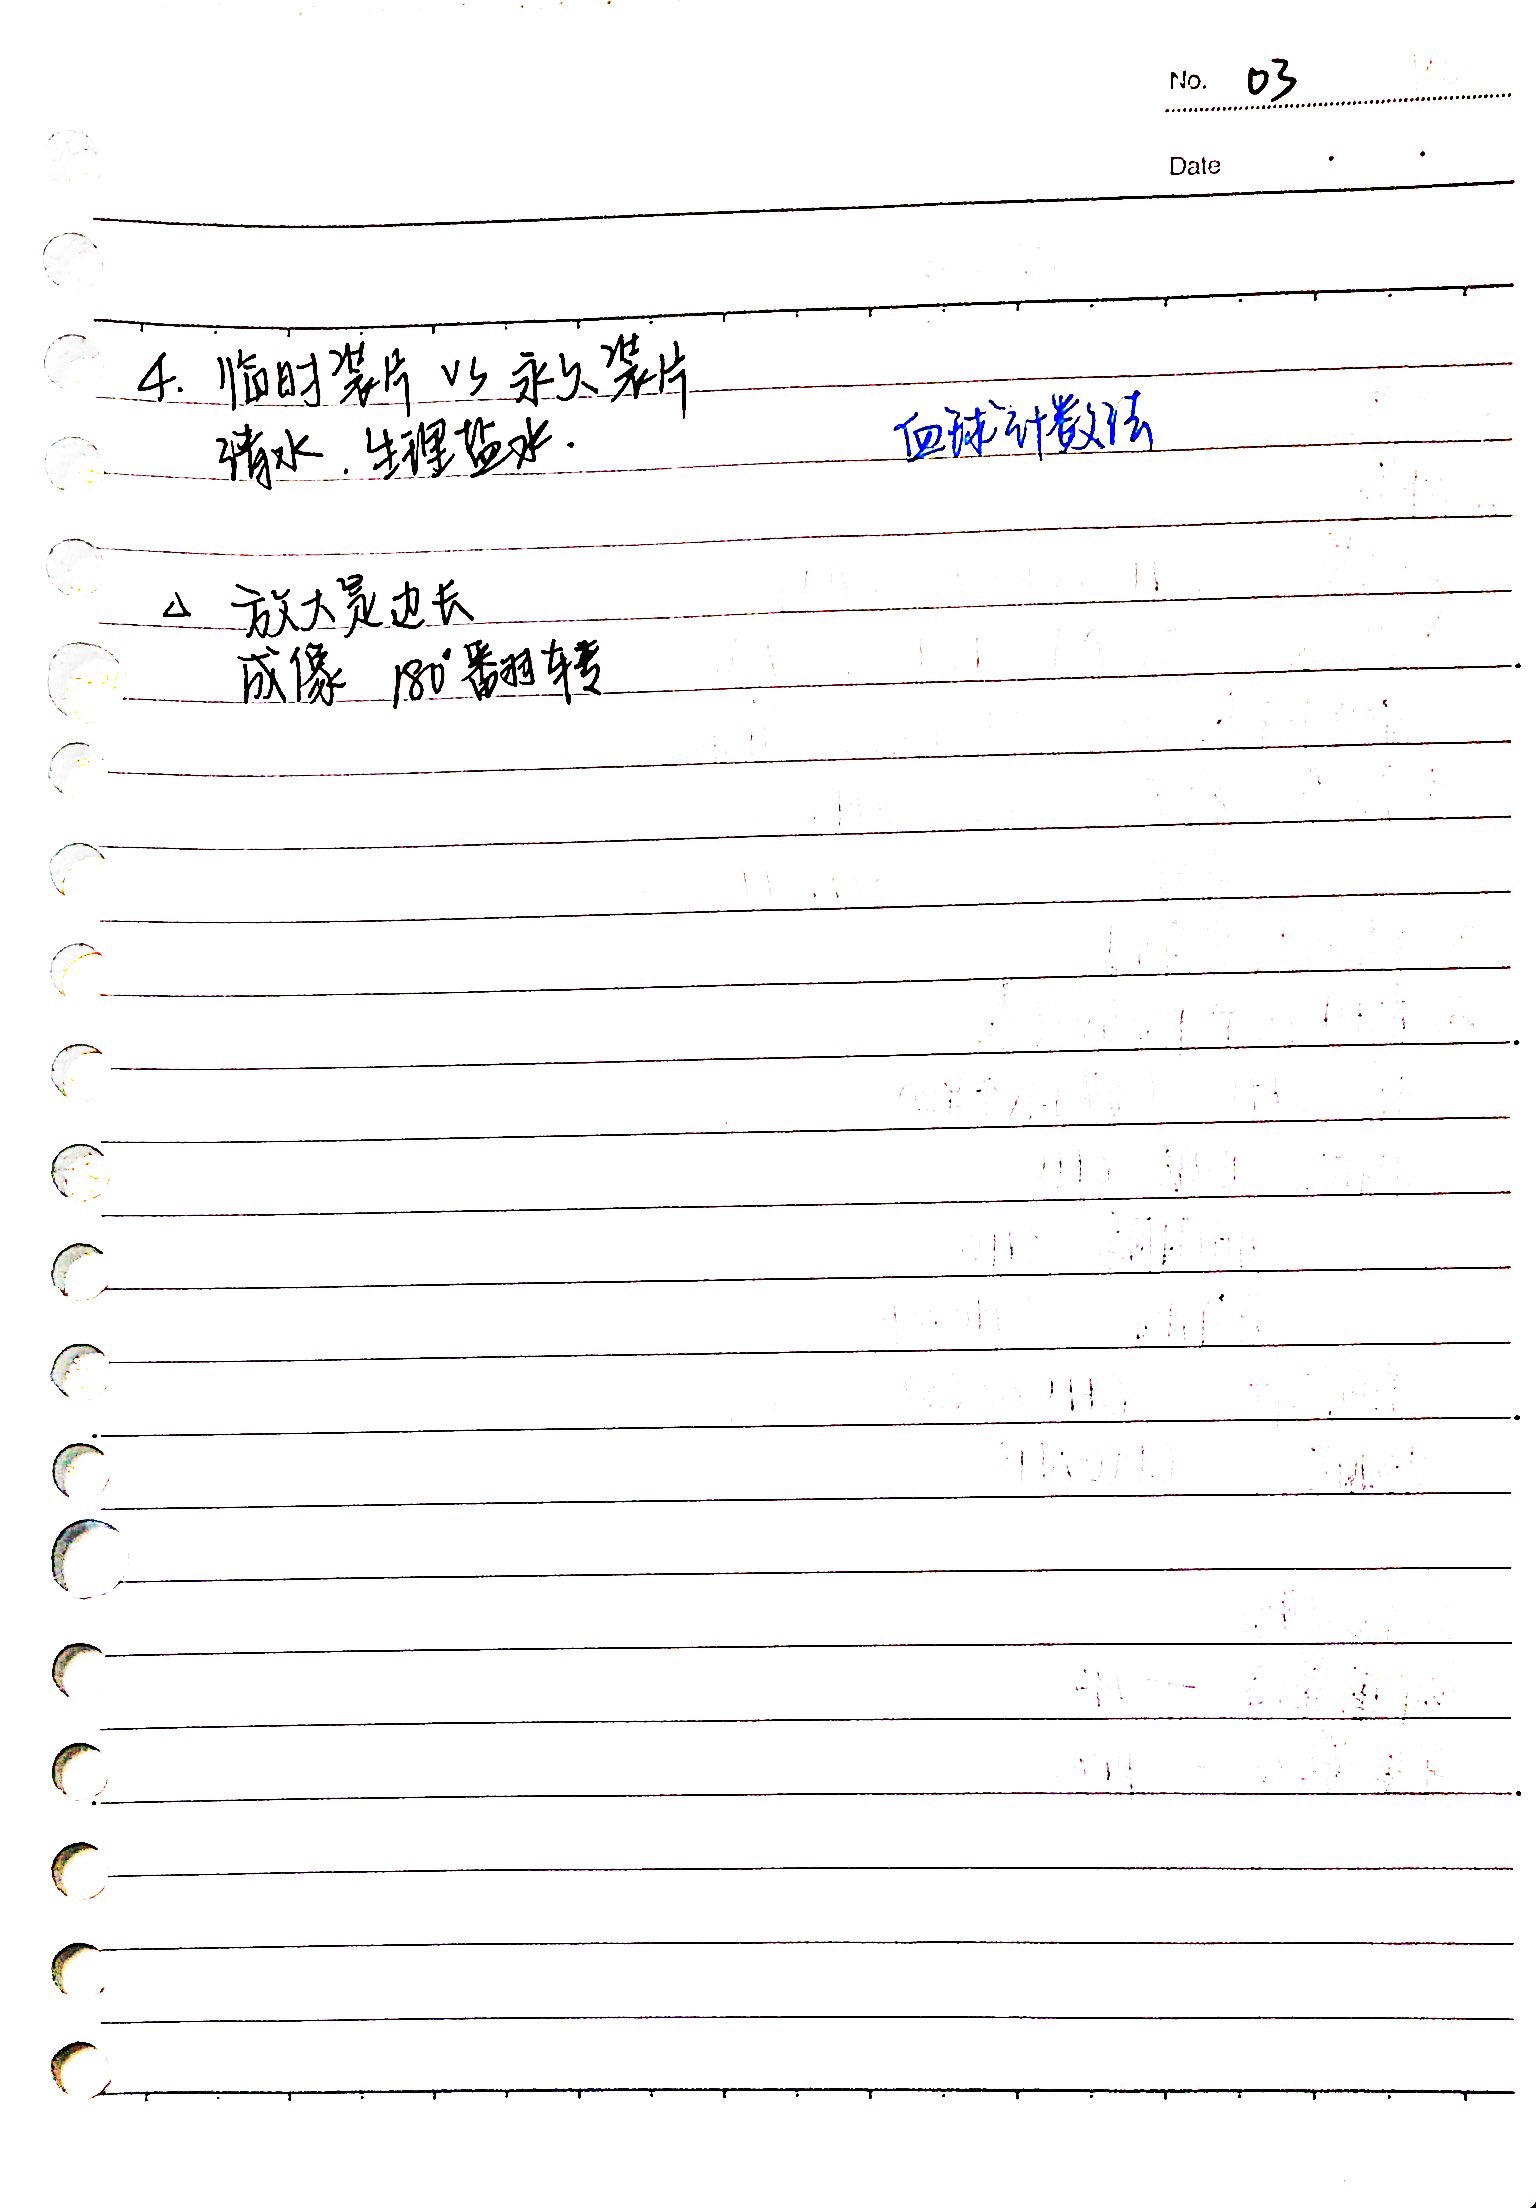 No. 03
Date
4. 临时装片 vs 永久装片
清水、生理盐水.
血球计数法
△ 放大是边长
成像 180°翻转